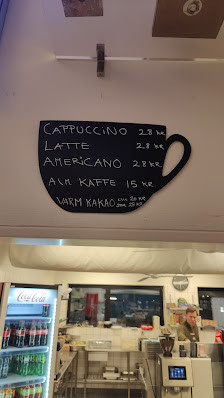 CAPPUCCINO 28 KR
LATTE 28 KR
AMERICANO 28 KR
ALM KAFFE 15 KR
VARM KAKAO LILLE 20 KR
STOR 25 KR
Coca-Cola